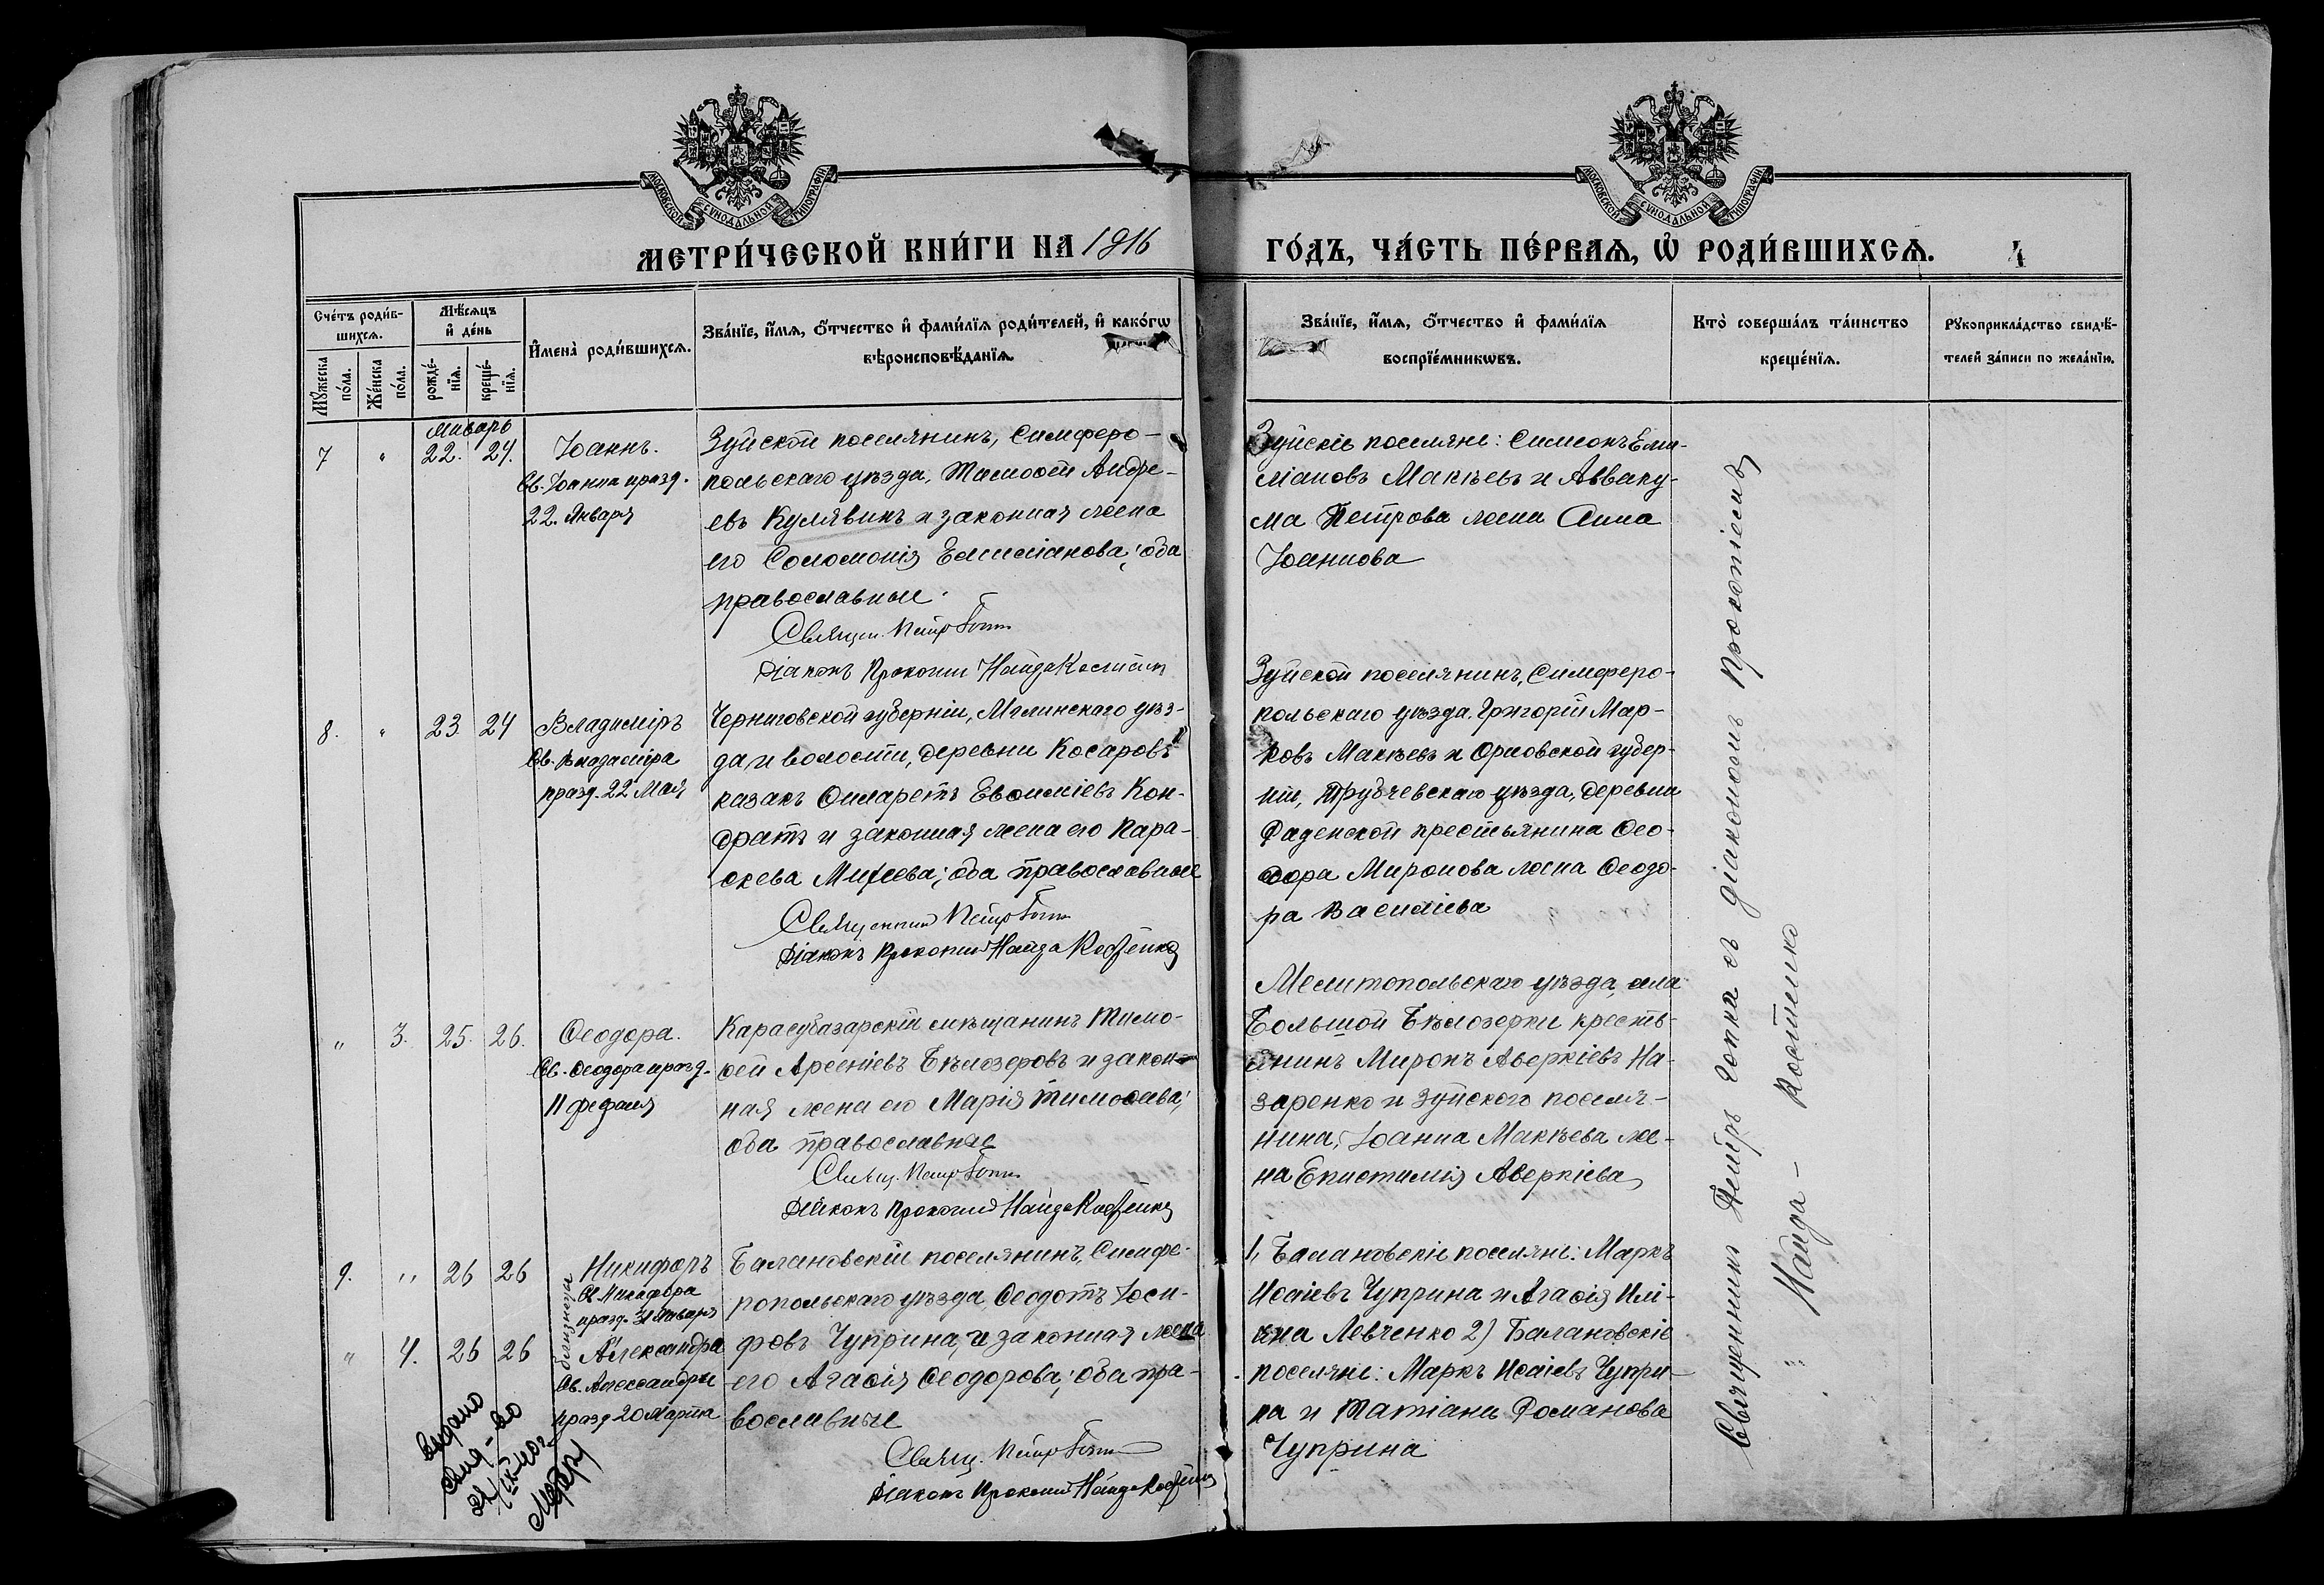 МОСКОВСКОЙ СѴНОДАЛЬНОЙ ТИПОГРАФІИ
МОСКОВСКОЙ СѴНОДАЛЬНОЙ ТИПОГРАФІИ
МЕТРИ́ЧЕСКОЙ КНИ́ГИ НА 1916
ГО́ДЪ, ЧА́СТЬ ПЕ́РВАѦ, Ѡ҆ РОДИ́ВШИХСѦ. 4
Сче́тъ роди́в-
шихсѧ.
Мѣ́сѧцъ
и҆ де́нь
Мꙋ́жеска
по́ла.
Же́нска
по́ла.
рожде́-
нїѧ.
креще́-
нїѧ.
И҆мена̀ роди́вшихсѧ.
Зва́нїе, и҆́мѧ, ѻ҆́тчество и҆ фами́лїѧ роди́телей, и҆ како́гѡ
вѣроисповѣ́данїѧ.
Зва́нїе, и҆́мѧ, ѻ҆́тчество и҆ фами́лїѧ
воспрїе́мникѡвъ.
Кто̀ соверша́лъ та́инство
креще́нїѧ.
Рꙋкоприкла́дство свидѣ́-
телей за́писи по жела́нїю.
Январь
7 " 22. 24.
Іоаннъ.
Св. Іоанна празд.
22. Января
Зуйской поселянинъ, Симферо-
польскаго уѣзда, Тимоѳей Андре-
евъ Кулявинъ и законная жена
его Соломонія Емиліанова; оба
православные.
Священ. Петръ
Діаконъ Прокопій Найда Костенко
Зуйскіе поселяне: Симеонъ Еми-
ліановъ Макѣевъ и Авваку-
ма Петрова жена Анна
Іоаннова
8. " 23. 24
Владиміръ
Св. Владиміра
празд. 22 Мая
Черниговской губерніи, Мглинскаго уѣз-
да и волости, деревни Косаровъ
казакъ Филаретъ Евѳиміевъ Кон-
дратъ и законная жена его Пара-
скева Михеева; оба православные
Священникъ Петръ
Діаконъ Прокопій Найда Костенко
Зуйской поселянинъ, Симферо-
польскаго уѣзда, Григорій Мар-
ковъ Макѣевъ и Орловской губер-
ніи, Трубчевскаго уѣзда, деревни
крестьянина Ѳео-
дора Миронова жена Ѳеодо-
ра Василіева
" 3. 25. 26.
Ѳеодора.
Св. Ѳеодоры празд.
11 февраля
Карасубазарскій мѣщанинъ Тимо-
ѳей Арсеніевъ Бѣлозеровъ и закон-
ная жена его Марія Тимоѳева;
оба православные
Свящ. Петръ
Діаконъ Прокопій Найда Костенко
Мелитопольскаго уѣзда, села
Большой Бѣлозерки кресть-
янинъ Миронъ Аверкіевъ На-
заренко и Зуйского поселя-
нина, Іоанна Макѣева же-
на Епистимія Аверкіева
9. " 26 26
близнецы
Никифоръ
Св. Никифора
празд. 31 Января
" 4. 26 26
Александра
Св. Александры
празд 20 Марта
Балановскій поселянинъ, Симфе-
ропольскаго уѣзда, Ѳеодотъ Іоси-
фовъ Чуприна, и законная жена
его Агаѳія Ѳеодорова; оба пра-
вославные
Свящ. Петръ
Діаконъ Прокопій Найда Костенко
1, Балановскіе поселяне: Маркъ
Исаіевъ Чуприна и Агаѳія Илі-
ина Левченко 2) Балановскіе
поселяне: Маркъ Исаіевъ Чупри-
на и Татіана Романова
Чуприна
Выдано
Священникъ Петръ съ діакономъ Прокопіемъ
" Найда - Костенко